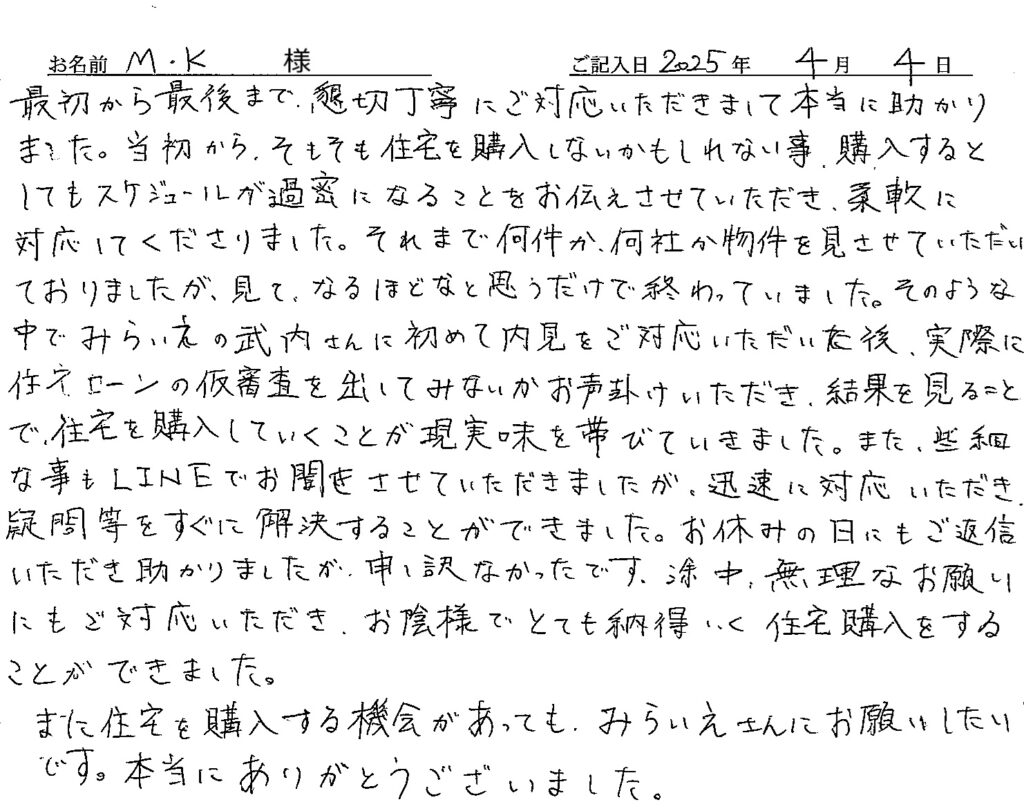 お名前 M.K 様 ご記入日 2025年 4月 4日
最初から最後まで、懇切丁寧にご対応いただきまして本当に助かり
ました。当初から、そもそも住宅を購入しないかもしれない事、購入すると
してもスケジュールが過密になることをお伝えさせていただき、柔軟に
対応してくださりました。それまで何件か、何社か物件を見させていただい
ておりましたが、見て、なるほどなと思うだけで終わっていました。そのような
中でみらいえの武内さんに初めて内見をご対応いただいた後、実際に
住宅ローンの仮審査を出してみないかお声掛けいただき、結果を見ること
で、住宅を購入していくことが現実味を帯びていきました。また、些細
な事もLINEでお聞きさせていただきましたが、迅速に対応いただき、
疑問等をすぐに解決することができました。お休みの日にもご返信
いただき助かりましたが、申し訳なかったです。途中、無理なお願い
にもご対応いただき、お陰様でとても納得いく住宅購入をする
ことができました。
また住宅を購入する機会があっても、みらいえさんにお願いしたい
です。本当にありがとうございました。